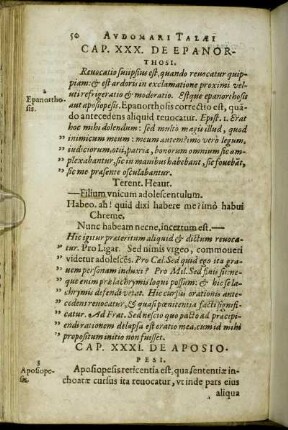 50 AVDOMARI TALÆI
CAP. XXX. DE EPANOR-
THOSI.
Reuocatio suiipsius est, quando reuocatur quip-
piam: & est ardoris in exclamatione proximi velu-
ti refrigeratio & moderatio. Estque epanorthosis
Epanortho-
sis.
aut aposiopesis. Epanorthosis correctio est, quā-
do antecedens aliquid reuocatur. Epist. 1. Erat
hoc mihi dolendum: sed multo magis illud, quod
inimicum meum: meum autem? imo verò legum,
iudiciorum otii, patriæ, bonorum omnium sic am-
plexabantur, sic in manibus habebant, sic fouebāt,
sic me præsente osculabantur.
Terent. Heaut.
—Filium vnicum adolescentulum.
Habeo. ah! quid dixi habere me? imò habui
Chreme,
Nunc habeam necne, incertum est.—
Hic igitur præteritum aliquid & dictum reuoca-
tur. Pro Ligar. Sed nimis vrgeo, commoueri
videtur adolescēs. Pro Cæl. Sed quid ego ita gra-
uem personam induxi? Pro Mil. Sed finis sit: ne-
que enim præ lachrymis loqui possum: & hic se la-
chrymis defendi vetat. Hic cursus orationis ante-
cedens reuocatur, & quasi pœnitentia facti signifi-
catur. Ad Frat. Sed nescio quo pacto ad præcipi-
endi rationem delapsa est oratio mea, cum id mihi
propositum initio non fuisset.
CAP. XXXI. DE APOSIO-
PESI.
Aposiope-
sis.
Aposiopesis reticentia est, qua sententiæ in-
choatæ cursus ita reuocatur, vt inde pars eius
aliqua